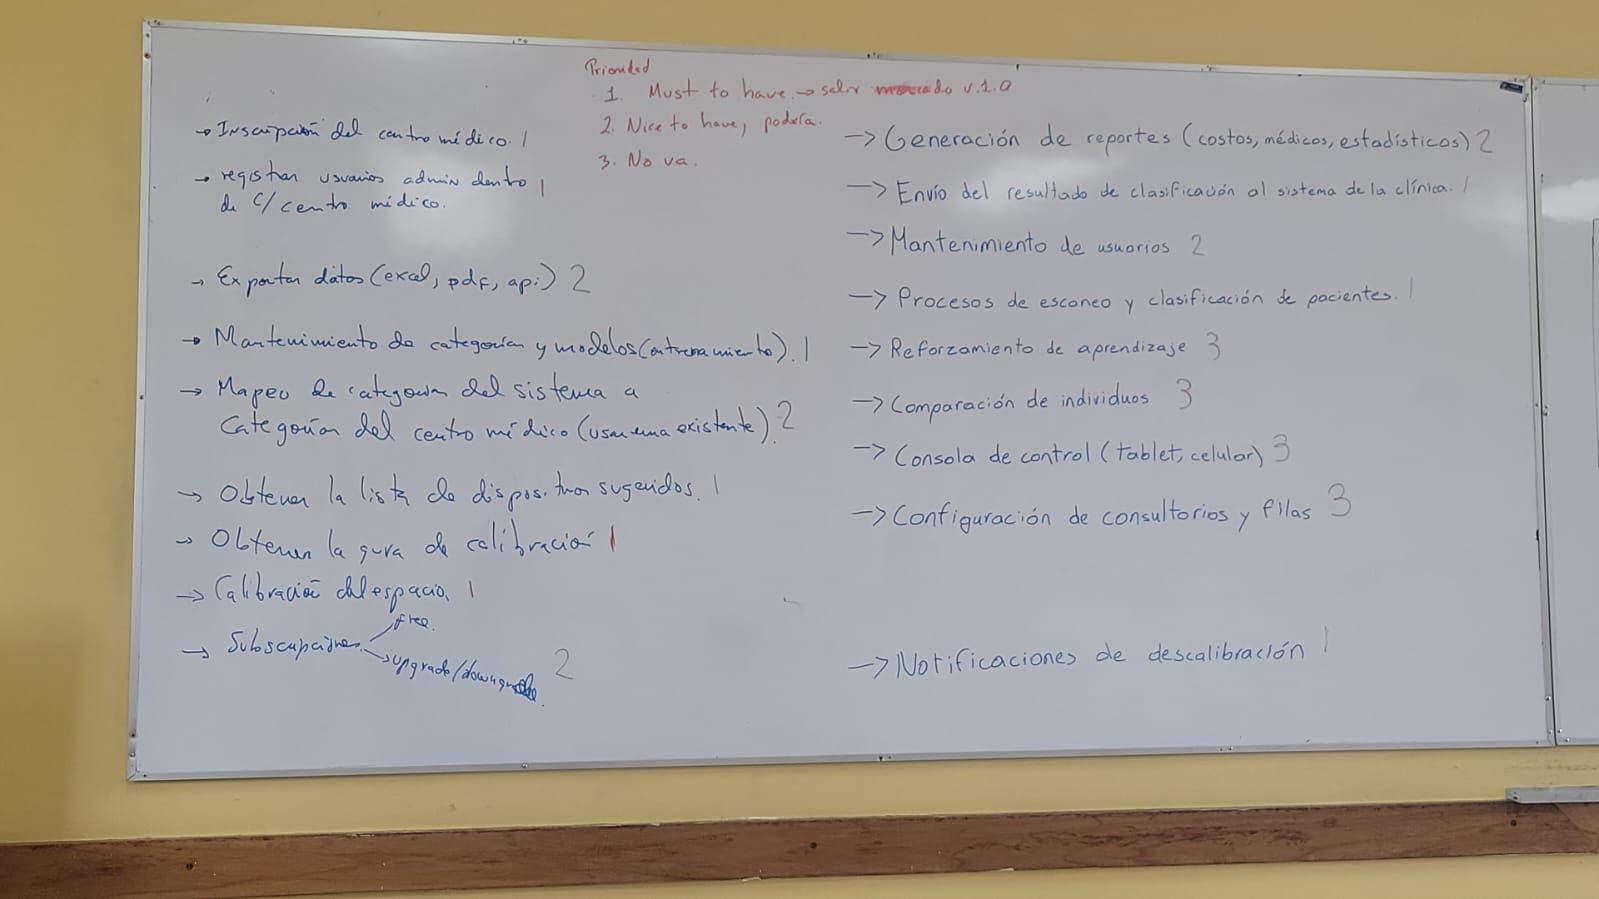 Prioridad
1. Must to have. → salir mercado v.1.0
2. Nice to have, podría.
3. No va.
→ Inscripción del centro médico. 1
→ registrar usuarios admin dentro 1
de c/ centro médico.
→ Exportar datos (excel, pdf, api) 2
→ Mantenimiento de categorías y modelos (entrenamiento). 1
→ Mapeo de categorías del sistema a
Categorías del centro médico (usar una existente). 2
→ Obtener la lista de dispositivos sugeridos. 1
→ Obtener la guía de calibración 1
→ Calibración del espacio. 1
→ Subscripciones free.
→ upgrade/downgrade. 2
→ Generación de reportes (costos, médicos, estadísticos) 2
→ Envío del resultado de clasificación al sistema de la clínica. 1
→ Mantenimiento de usuarios 2
→ Procesos de escaneo y clasificación de pacientes. 1
→ Reforzamiento de aprendizaje 3
→ Comparación de individuos 3
→ Consola de control (tablet, celular) 3
→ Configuración de consultorios y filas 3
→ Notificaciones de descalibración 1